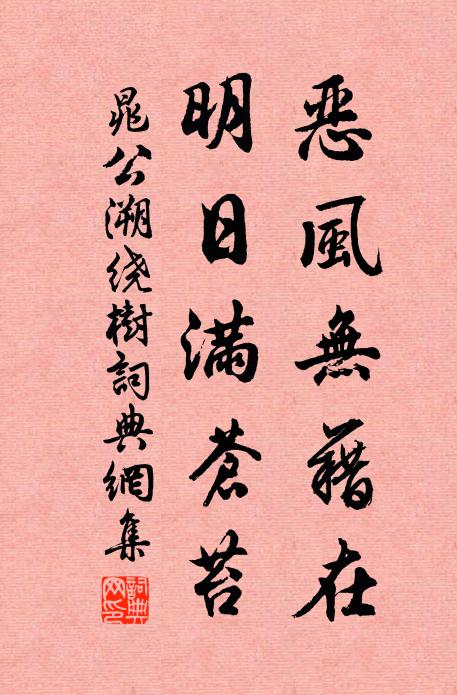 恶風無藉在
明日满蒼苔
晁公溯绕樹詞典網集
詞典网印